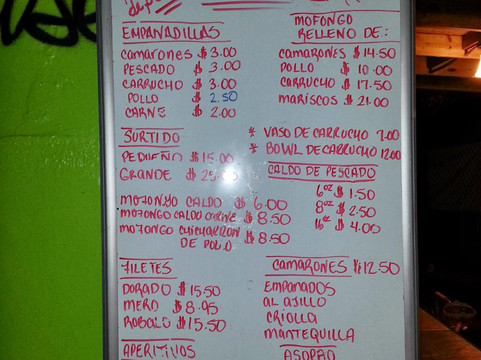 EMPANADILLAS
CAMARONES $ 3.00
PESCADO $ 3.00
CARRUCHO $ 3.00
POLLO $ 2.50
CARNE $ 2.00
MOFONGO
RELLENO DE:
CAMARONES $ 14.50
POLLO $ 10.00
CARRUCHO $ 17.50
MARISCOS $ 21.00
SURTIDO
PEQUEÑO $ 15.00
GRANDE $ 25.00
* VASO DE CARRUCHO 7.00
* BOWL DE CARRUCHO 12.00
CALDO DE PESCADO
6oz $ 1.50
8oz $ 2.50
16oz $ 4.00
MOFONGO CALDO $ 6.00
MOFONGO CALDO CARNE $ 8.50
MOFONGO CHICHARRON
DE POLLO $ 8.50
FILETES
DORADO $ 15.50
MERO $ 8.95
ROBALO $ 15.50
APERITIVOS
CAMARONES $ 12.50
EMPANADOS
AL AJILLO
CRIOLLA
MANTEQUILLA
ASOPAO